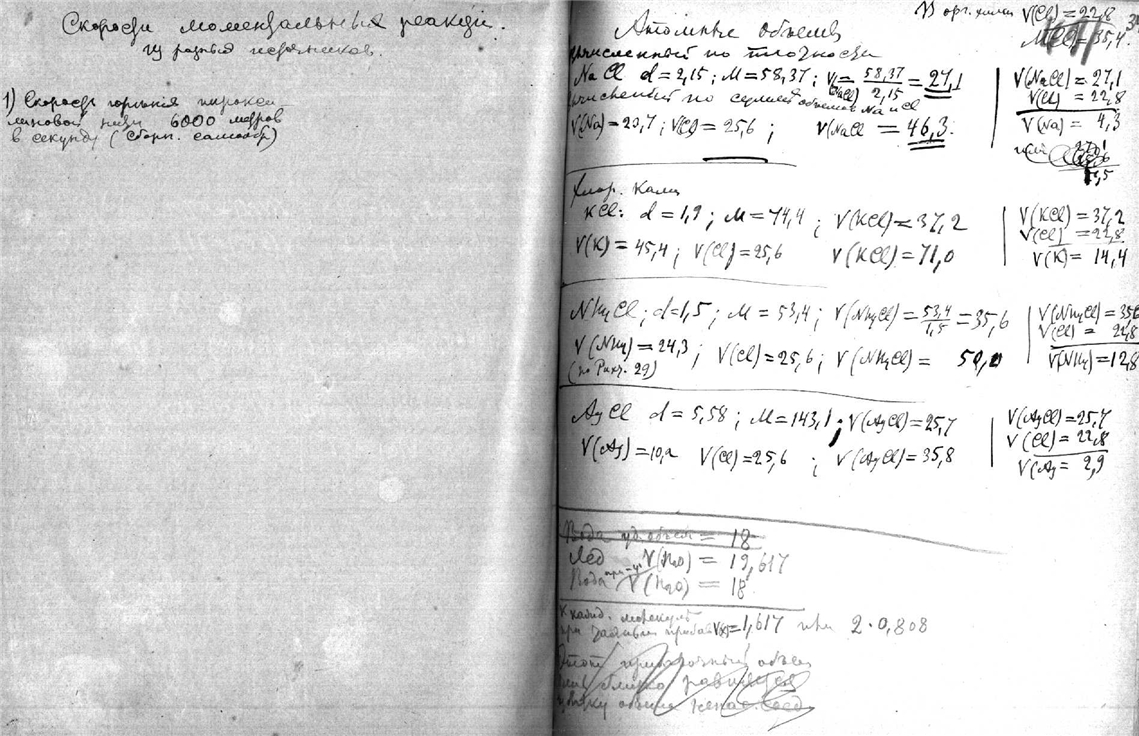 Скорости моментальных реакций.
из разных источников.
1) Скорость горения пирокси
линовой нити 6000 метров
в секунду (Сборн.
В орг. химии V(Cl) = 22,8
M(Cl) = 35,4
3
Атомные объемы
вычисленный по плотности
NaCl d = 2,15; M = 58,37; V(NaCl) = 58,37/2,15 = 27,1
вычисленный по сумме объемов Na и Cl
V(Na) = 23,7; V(Cl) = 25,6; V(NaCl = 46,3.
V(NaCl) = 27,1
V(Cl) = 22,8
V(Na) = 4,3
Хлор. Калий
KCl: d = 1,9; M = 74,4; V(KCl) = 37,2
V(K) = 45,4; V(Cl) = 25,6 V(KCl) = 71,0
V(KCl) = 37,2
V(Cl) = 22,8
V(K) = 14,4
NH4Cl; d=1,5; M = 53,4; V(NH4Cl) = 53,4/1,5 = 35,6
V(NH4) = 24,3; V(Cl) = 25,6; V(NH4Cl) = 50,0
(по Рихт. 29)
V(NH4Cl) = 356
V(Cl) = 22,8
V(NH4) = 12,8
AgCl d = 5,58; M = 143,1; V(AgCl) = 25,7
V(Ag) = 10,2 V(Cl) = 25,6; V(AgCl) = 35,8
V(AgCl) = 25,7
V(Cl) = 22,8
V(Ag = 2,9
Вода уд. объем = 18
Лед V(H2O) = 19,617
Вода V(H2O) = 18
К кажд. молекуле
при = 1,617 или 2·0,808
Этот объем
близко равняется
объема